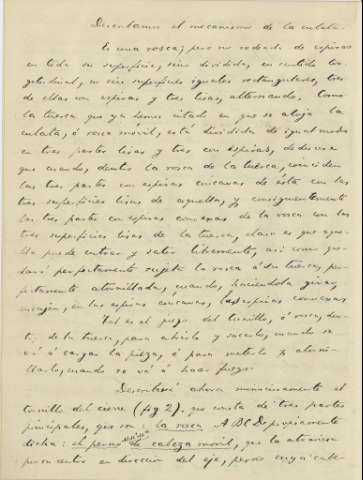 Describamos el mecanismo de la culata.
Es una rosca; pero no rodeada de espiras
en toda su superficie, sino dividida, en sentido lon-
gitudinal, en seis superficies iguales rectangulares, tres
de ellas con espiras y tres lisas, alternando. Como
la tuerca que ya hemos citado en que se aloja la
culata, ó rosca movil, está dividida de igual modo
en tres partes lisas y tres con espiras,
que cuando, dentro la rosca de la tuerca, coinciden
las tres partes con espiras cóncavas de ésta con las
tres superficies lisas de aquella, y consiguientemente
las tres partes con espiras convexas de la rosca con las
tres superficies lisas de la tuerca, claro es que aque-
lla puede entrar y salir libremente, así como que-
dará perfectamente sujeta la rosca á su tuerca, per-
fectamente atornillada, cuando, haciendola girar,
encajen, en las espiras cóncavas, las espiras convexas
Tal es el juego del tornillo, ó rosca, den-
tro de la tuerca, para abrirlo y sacarlo, cuando se
vá á cargar la pieza, ó para meterlo y atorni-
llarlo, cuando se vá á hacer fuego.
Describiré ahora minuciosamente el
tornillo del cierre (fig 2), que consta de tres partes
principales, que son: la rosca ABCD propiamente
dicha: el perno de cabeza movil, que la atraviesa
por su centro en direccion del eje, perno cuya cabe-